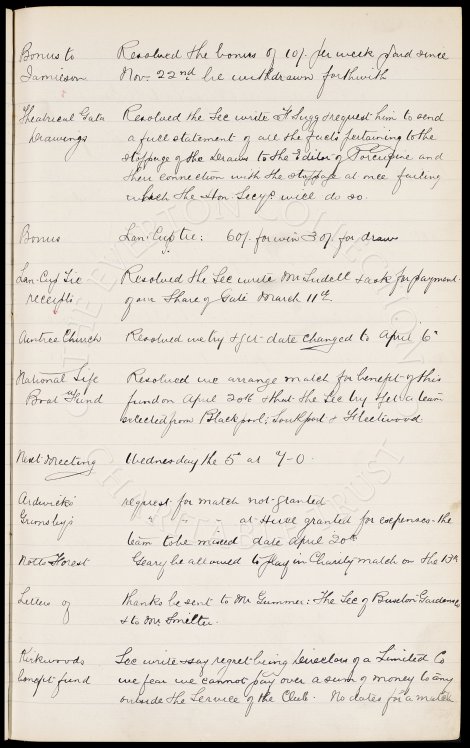 Bonus to Resolved the bonus of 10/. per week paid since
Jamieson Nov. 22nd be withdrawn forthwith
Theatrical Gala Resolved the Sec write F Sugg & request him to send
Drawings a full statement of all the facts pertaining to the
stoppage of the Draws to the Editor of Porcupine and
their connection with the stoppage at once failing
which the Hon. Secys will do so.
Bonus Lan: Cup tie: 60/. for win 30/. for draw
Lan-Cup Tie Resolved the Sec write Mr Sudell & ask for payment
receipts of our Share of Gate March 11th.
Aintree Church Resolved we try & get date changed to April 6th
National Life Resolved we arrange match for benefit of this
Boat Fund fund on April 20th & that the Sec try & get a team
selected from Blackpool; Southport & Fleetwood.
Next Meeting Wednesday the 5th at 7-0.
Ardwicks request for match not granted
Grimsby's " " " at Huse granted for expenses - the
team to be mixed date April 20th
Notts Forest Geary be allowed to play in Charity match on the 13th
Letters of thanks be sent to Mr Gummer: The Sec of Gardens
& to Mr Smelter.
Kirkwoods Sec write & say regret being Directors of a Limited Co
benefit fund we fear we cannot pay over a sum of money to any
outside the Service of the Club. No dates for a match
THE EVERTON COLLECTION
CHARITABLE TRUST